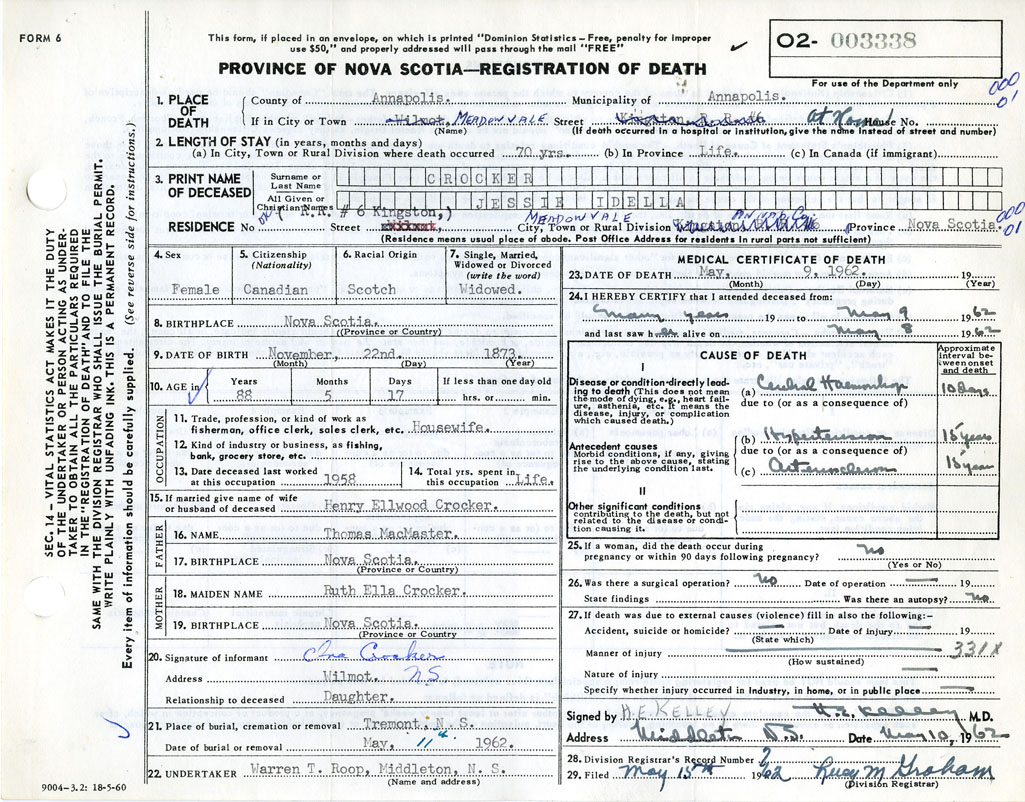 FORM 6
This form, if placed in an envelope, on which is printed "Dominion Statistics – Free, penalty for improper
use $50," and properly addressed will pass through the mail "FREE"
O2- 003338
For use of the Department only
PROVINCE OF NOVA SCOTIA—REGISTRATION OF DEATH
000
01
1. PLACE OF DEATH
County of Annapolis. Municipality of Annapolis.
If in City or Town Wilmot, MEADOWVALE Street Kingston R. R. #6 At Home House No.
(Name) (If death occurred in a hospital or institution, give the name instead of street and number)
2. LENGTH OF STAY (in years, months and days)
(a) In City, Town or Rural Division where death occurred 70 yrs. (b) In Province Life. (c) In Canada (if immigrant)
3. PRINT NAME OF DECEASED
Surname or Last Name CROCKER
All Given or Christian Names JESSIE IDELLA
( R.R. # 6 Kingston,) MEADOWVALE
000
01
RESIDENCE No Street City, Town or Rural Division Province Nova Scotia.
(Residence means usual place of abode. Post Office Address for residents in rural parts not sufficient)
4. Sex
Female
5. Citizenship
(Nationality)
Canadian
6. Racial Origin
Scotch
7. Single, Married, Widowed or Divorced
(write the word)
Widowed.
8. BIRTHPLACE Nova Scotia.
((Province or Country)
9. DATE OF BIRTH November, 22nd. 1873.
(Month) (Day) (Year)
10. AGE in
Years Months Days If less than one day old
88 5 17 hrs. or min.
OCCUPATION
11. Trade, profession or kind of work as
fisherman, office clerk, sales clerk, etc. Housewife.
12. Kind of industry or business, as fishing,
bank, grocery store, etc.
13. Date deceased last worked
at this occupation 1958
14. Total yrs. spent in
this occupation Life.
15. If married give name of wife
or husband of deceased Henry Ellwood Crocker.
FATHER
16. NAME Thomas MacMaster.
17. BIRTHPLACE Nova Scotia.
(Province or Country)
MOTHER
18. MAIDEN NAME Ruth Ella Crocker.
19. BIRTHPLACE Nova Scotia.
(Province or Country
20. Signature of informant Ina Crocker
Address Wilmot. N S
Relationship to deceased Daughter.
21. Place of burial, cremation or removal Tremont, N. S.
Date of burial or removal May, 11th 1962.
22. UNDERTAKER Warren T. Roop, Middleton, N. S.
(Name and address)
9004–3.2: 18-5-60
SEC. 14 – VITAL STATISTICS ACT MAKES IT THE DUTY
OF THE UNDERTAKER OR PERSON ACTING AS UNDER-
TAKER TO OBTAIN ALL THE PARTICULARS REQUIRED
IN THE "REGISTRATION OF DEATH" AND TO FILE THE
SAME WITH THE DIVISION REGISTRAR WHO SHALL ISSUE THE BURIAL PERMIT.
WRITE PLAINLY WITH UNFADING INK. THIS IS A PERMANENT RECORD.
Every item of information should be carefully supplied. (See reverse side for instructions.)
MEDICAL CERTIFICATE OF DEATH
23. DATE OF DEATH May. 9, 1962. 19
(Month) (Day) (Year)
24. I HEREBY CERTIFY that I attended deceased from:
Many years 19 to May 9 1962
and last saw her alive on May 8 1962
CAUSE OF DEATH
Approximate interval between onset and death
I
Disease or condition directly lead-
ing to death (This does not mean
the mode of dying, e.g., heart fail-
ure, asthenia, etc. It means the
disease, injury, or complication
which caused death.)
(a) Cerebral Haemorrhage 10 days
due to (or as a consequence of)
Antecedent causes
Morbid conditions, if any, giving
rise to the above cause, stating
the underlying condition last.
(b) Hypertension 15 years
due to (or as a consequence of)
(c) 15 year
II
Other significant conditions
contributing to the death, but not
related to the disease or condi-
tion causing it.
25. If a woman, did the death occur during
pregnancy or within 90 days following pregnancy? no
(Yes or No)
26. Was there a surgical operation? no Date of operation — 19
State findings Was there an autopsy? no
27. If death was due to external causes (violence) fill in also the following:–
Accident, suicide or homicide? — Date of injury — 19
(State which)
Manner of injury 331X
(How sustained)
Nature of injury —
Specify whether injury occurred in industry, in home, or in public place —
Signed by H.E. KELLEY H. E. Kelley M.D.
Address Middleton N.S. Date May 10, 1962
28. Division Registrar's Record Number
29. Filed May 15th 1962 Lucy M Graham
(Division Registrar)